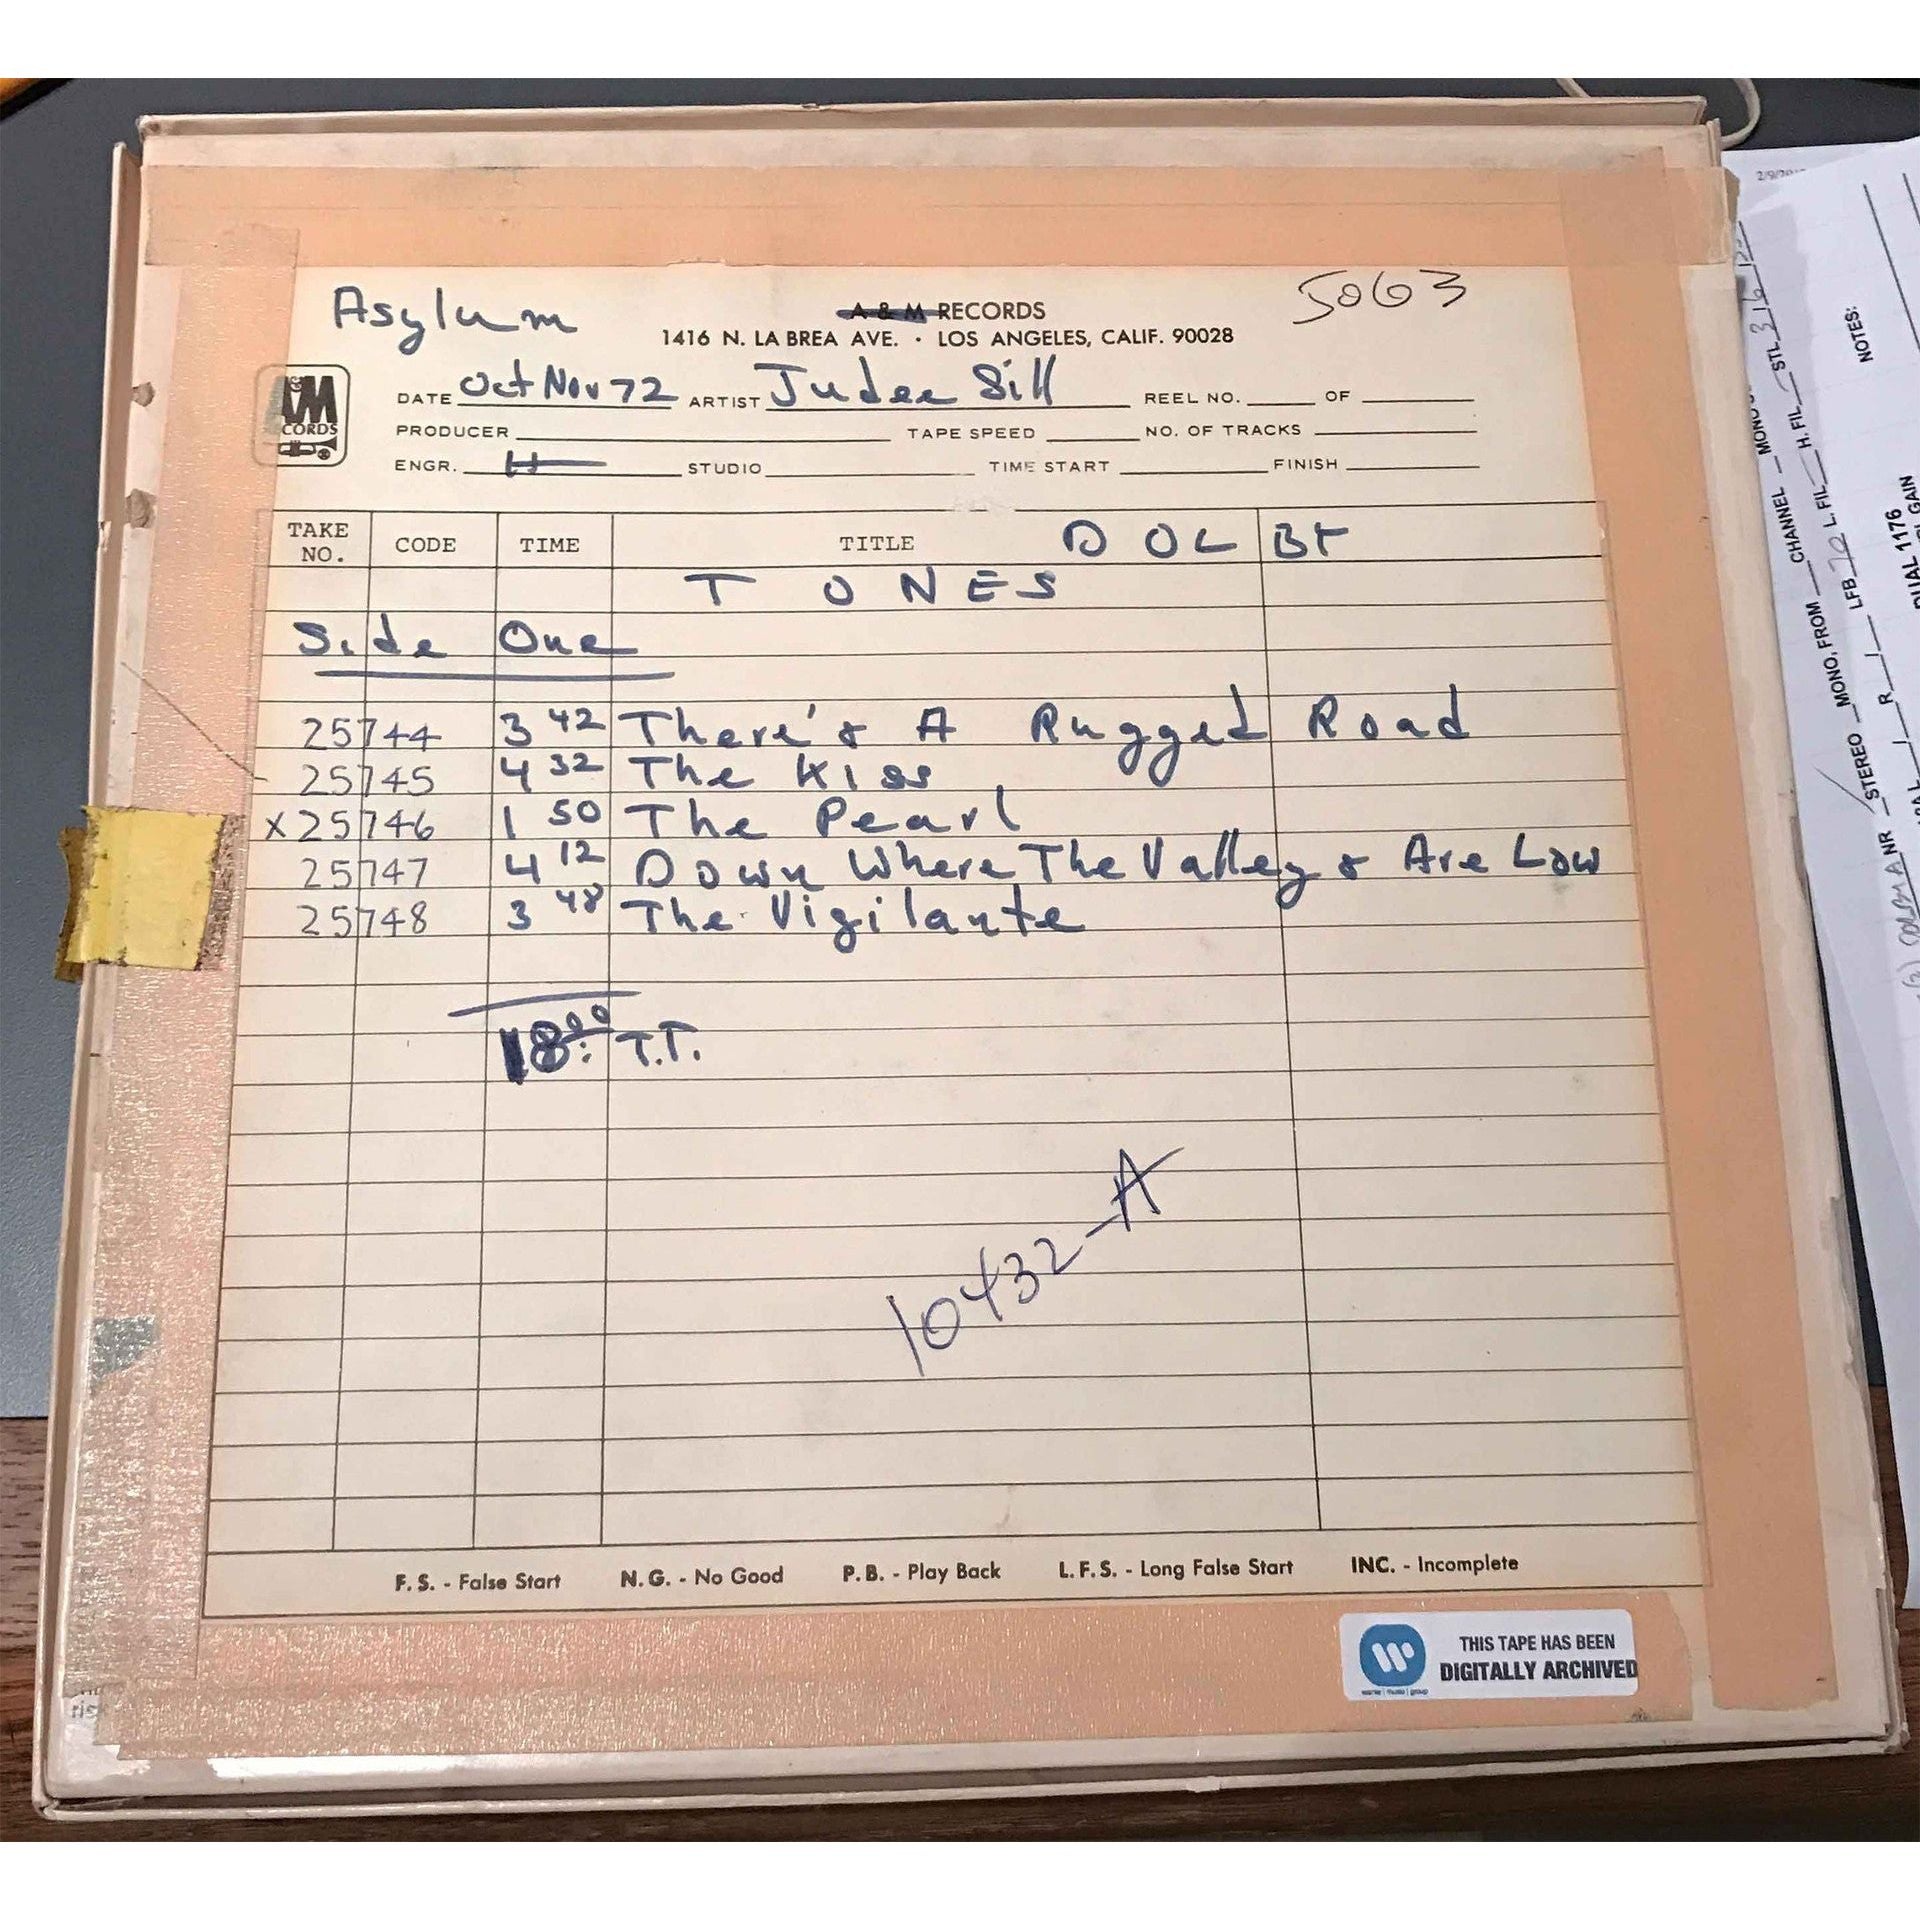 Asylum
5063
A & M RECORDS
1416 N. LA BREA AVE. · LOS ANGELES, CALIF. 90028
A&M
CORDS
DATE Oct Nov 72 ARTIST Judee Sill REEL NO. OF
PRODUCER TAPE SPEED NO. OF TRACKS
ENGR. STUDIO TIME START FINISH
TAKE NO. CODE TIME TITLE DOLBY
TONES
Side One
25744 3 42 There's A Rugged Road
25745 4 32 The Kiss
x 25746 1 50 The Pearl
25747 4 12 Down Where The Valleys Are Low
25748 3 48 The Vigilante
18:00 T.T.
10432-A
F.S. - False Start N.G. - No Good P.B. - Play Back L.F.S. - Long False Start INC. - Incomplete
THIS TAPE HAS BEEN
DIGITALLY ARCHIVED
warner music group
NOTES:
STL 3/6
CHANNEL MONO
H. FIL
STEREO MONO, FROM LFB 20 L. FIL
NR R
DUAL 1176
GAIN